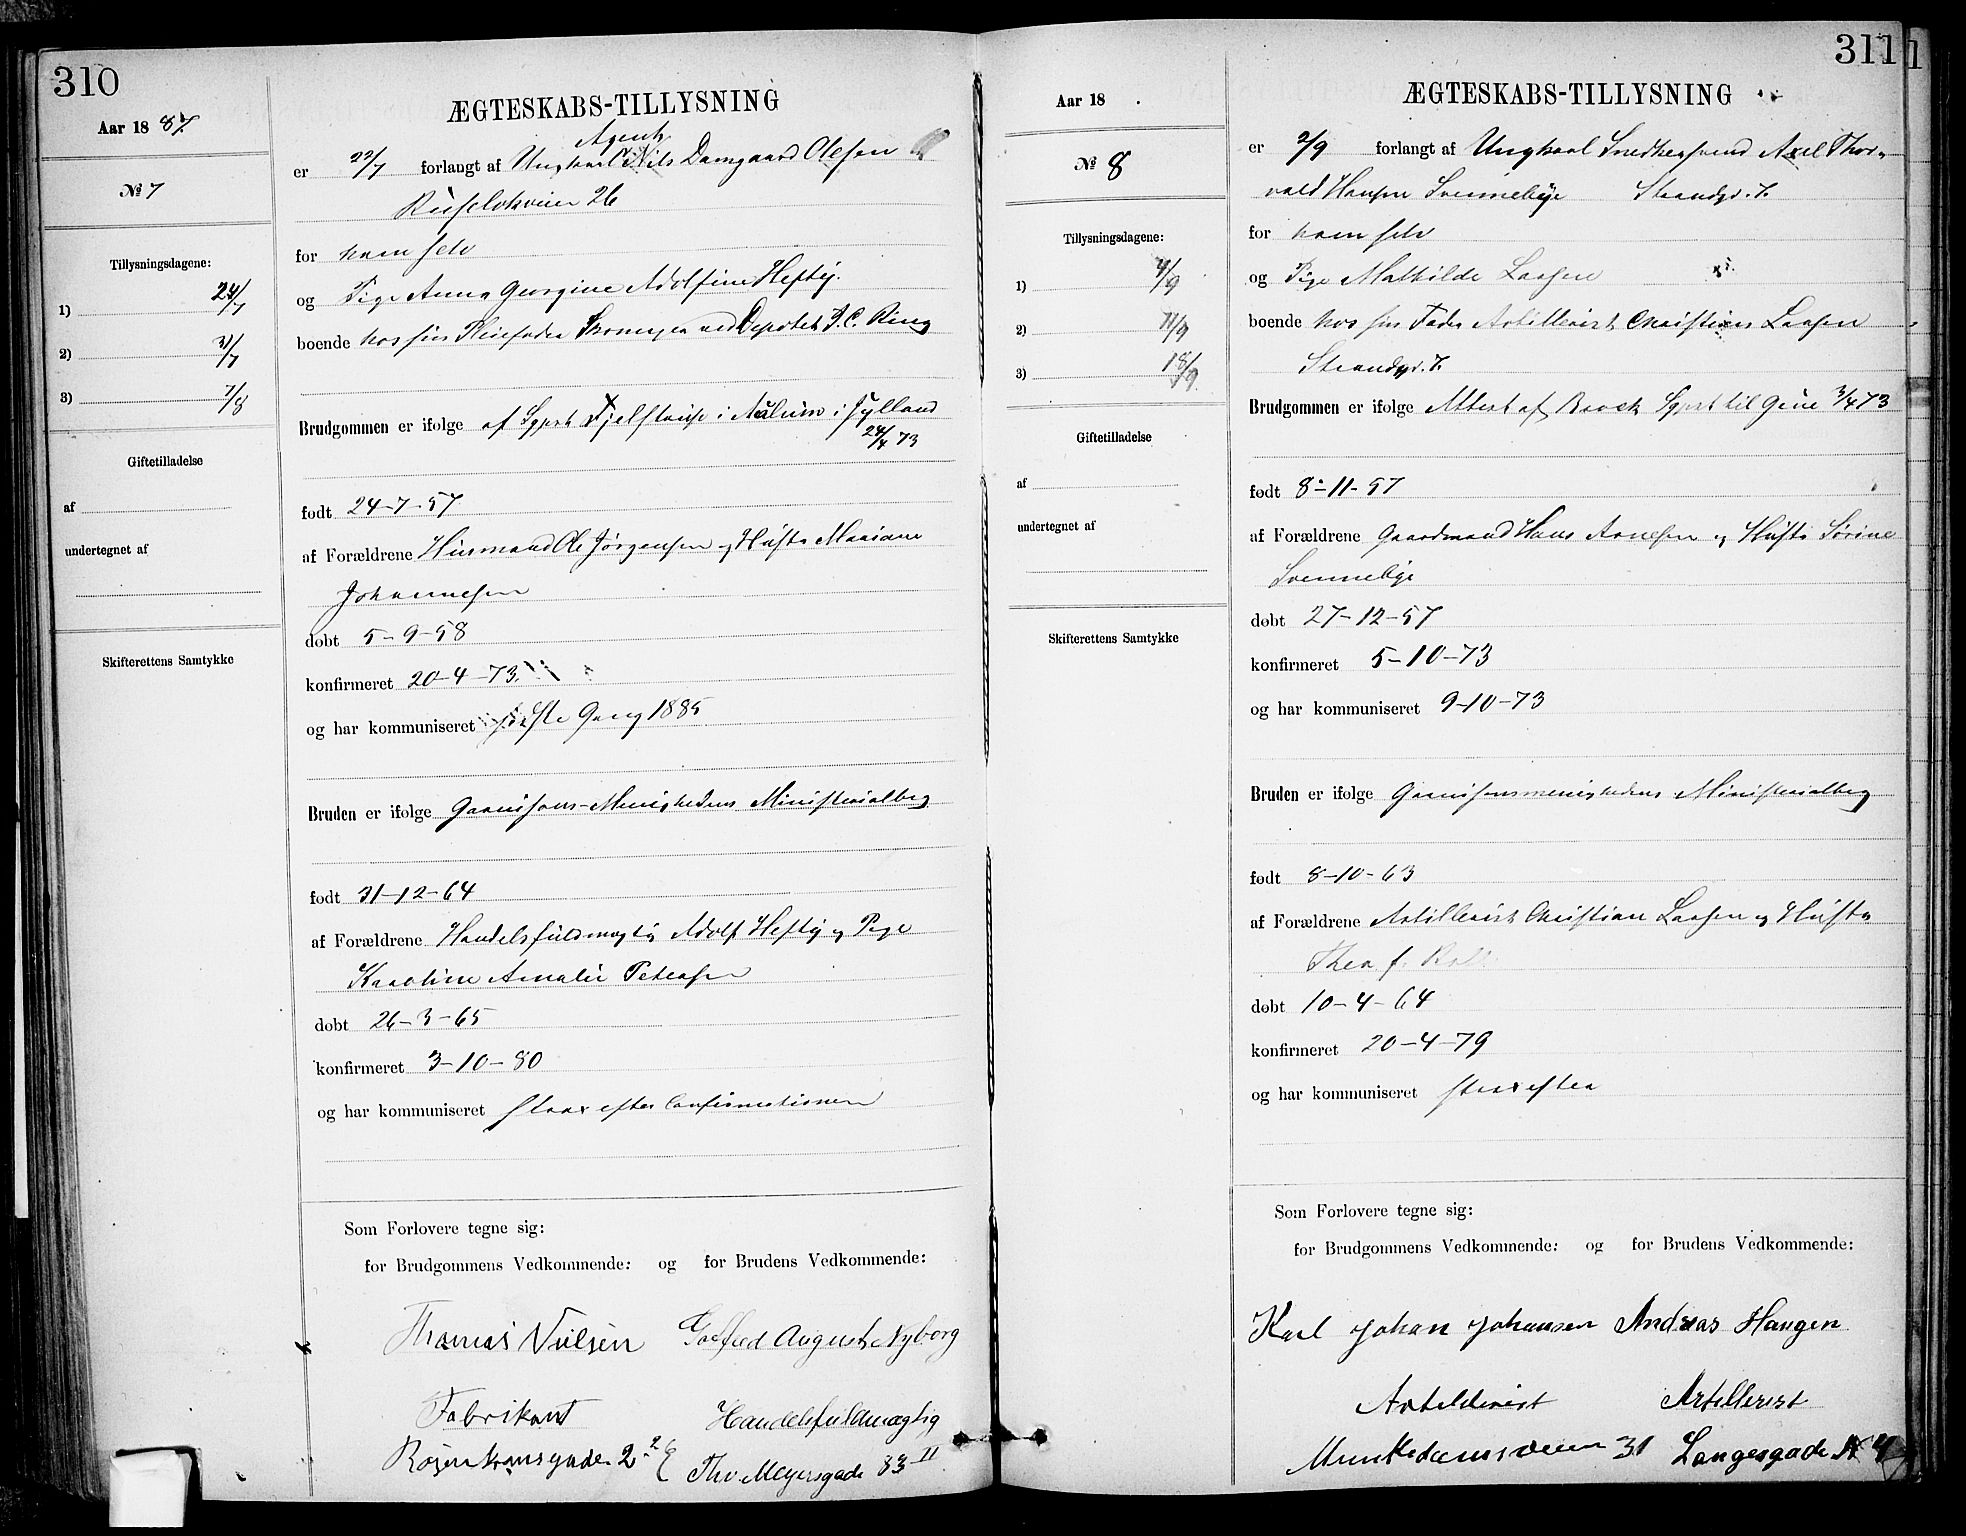 310
Aar 1887.
№ 7
Tillysningsdagene:
1) 24/7
2) 31/7
3) 7/8
Giftetilladelse
af
undertegnet af
Skifterettens Samtykke
ÆGTESKABS-TILLYSNING
Agent
er 22/7 forlangt af Ungkarl Nils Damgaard Olesen
Ruseløkveien 26
for ham selv
og Pige Anna Georgine Adolfine Hefty.
boende hos sin Pleiefader ved Depotet P. C. Ring
Brudgommen er ifølge af Sgprst Fjelstrup i Aulum i Jylland
24/4 73
født 24-7-57
af Forældrene Husmand Ole Jørgensen og Hustru Mariane
Johannesen
døbt 5-9-58
konfirmeret 20-4-73.
og har kommuniseret sidste Gang 1885
Bruden er ifølge Garnisons-Menighedens Ministerialbog
født 31-12-64
af Forældrene Handelsfuldmægtig Adolf Hefty og Pige
Karoline Amalie Petersen
døbt 26-3-65
konfirmeret 3-10-80
og har kommuniseret strax efter Confirmationen
Som Forlovere tegne sig:
for Brudgommens Vedkommende: og for Brudens Vedkommende:
Thomas Nielsen Gotfred August Nyborg
Fabrikant Handelsfuldmægtig
Rosenkransgade 2 Thv. Meyersgade 33 II
311
Aar 18
№ 8
Tillysningsdagene:
1) 4/9
2) 11/9
3) 18/9
Giftetilladelse
af
undertegnet af
Skifterettens Samtykke
ÆGTESKABS-TILLYSNING
er 2/9 forlangt af Ungkarl Snedkersvend Axel Thor-
vald Hansen Svennebye Strandgd. 7.
for ham selv
og Pige Mathilde Larsen
boende hos sin Fader Artillerist Christian Larsen
Strandgd. 7.
Brudgommen er ifølge Attest af Sgprst til 3/4 73
født 8-11-57
af Forældrene Gaardmand Hans Arnesen og Hustr Sørine
Svennebye
døbt 27-12-57
konfirmeret 5-10-73
og har kommuniseret 9-10-73
Bruden er ifølge Garnisonsmenighedens Ministerialbog
født 8-10-63
af Forældrene Artillerist Christian Larsen og Hustr
Thea f.
døbt 10-4-64
konfirmeret 20-4-79
og har kommuniseret strax efter
Som Forlovere tegne sig:
for Brudgommens Vedkommende: og for Brudens Vedkommende:
Karl Johan Johansen Andreas Haugen
Artillerist Artillerist
Munkedamsveien 31 Langesgade № 4